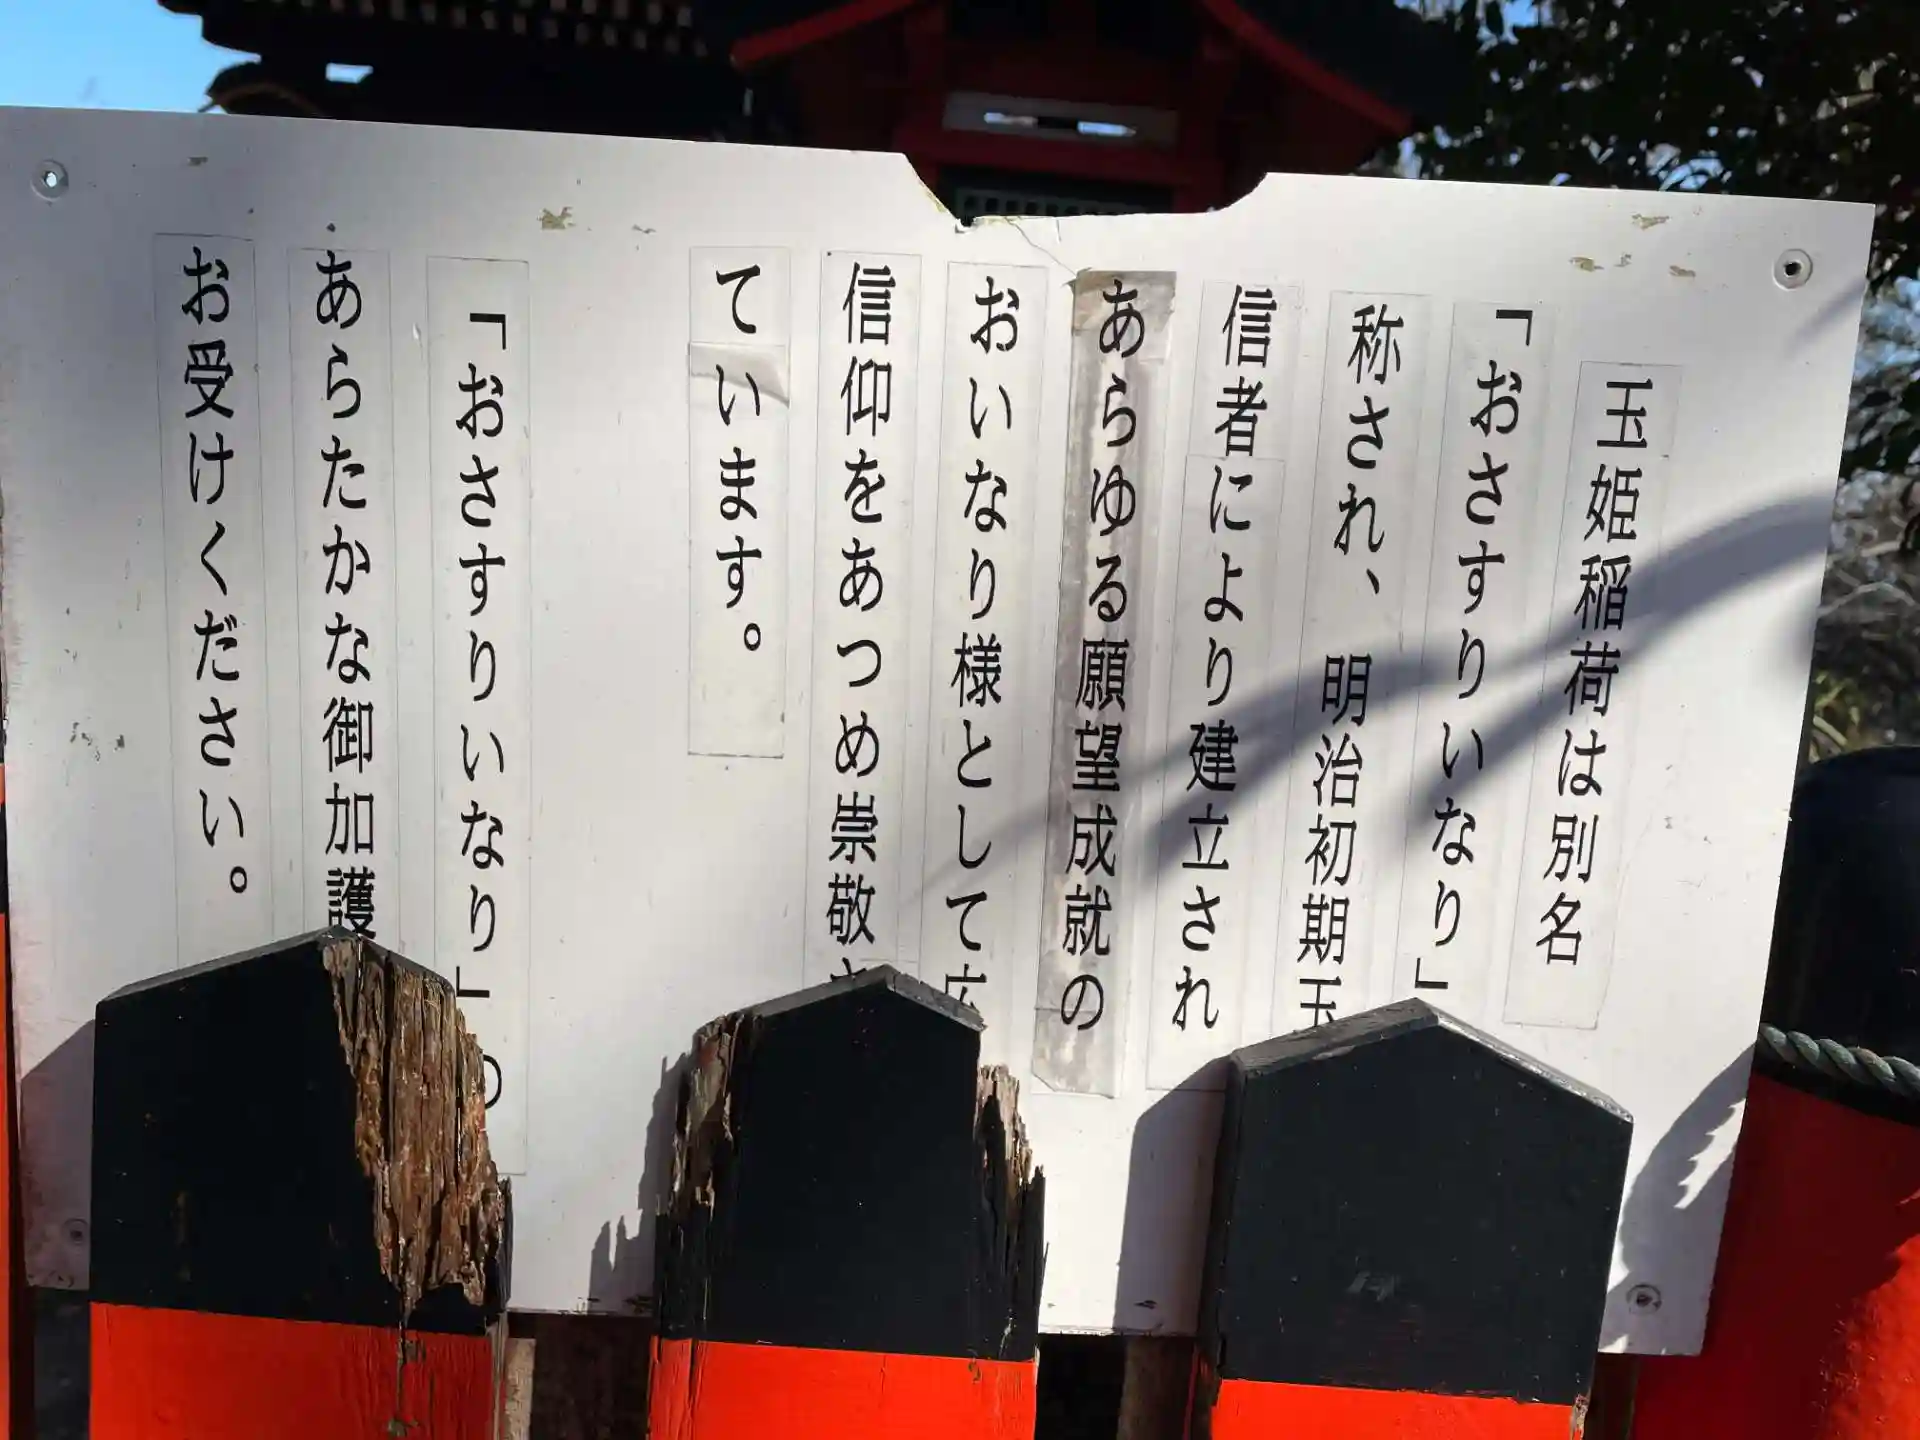 玉姫稲荷は別名
「おさすりいなり」
称され、明治初期玉
信者により建立され
あらゆる願望成就の
おいなり様として広
信仰をあつめ崇敬さ
ています。
「おさすりいなり」の
あらたかな御加護
お受けください。